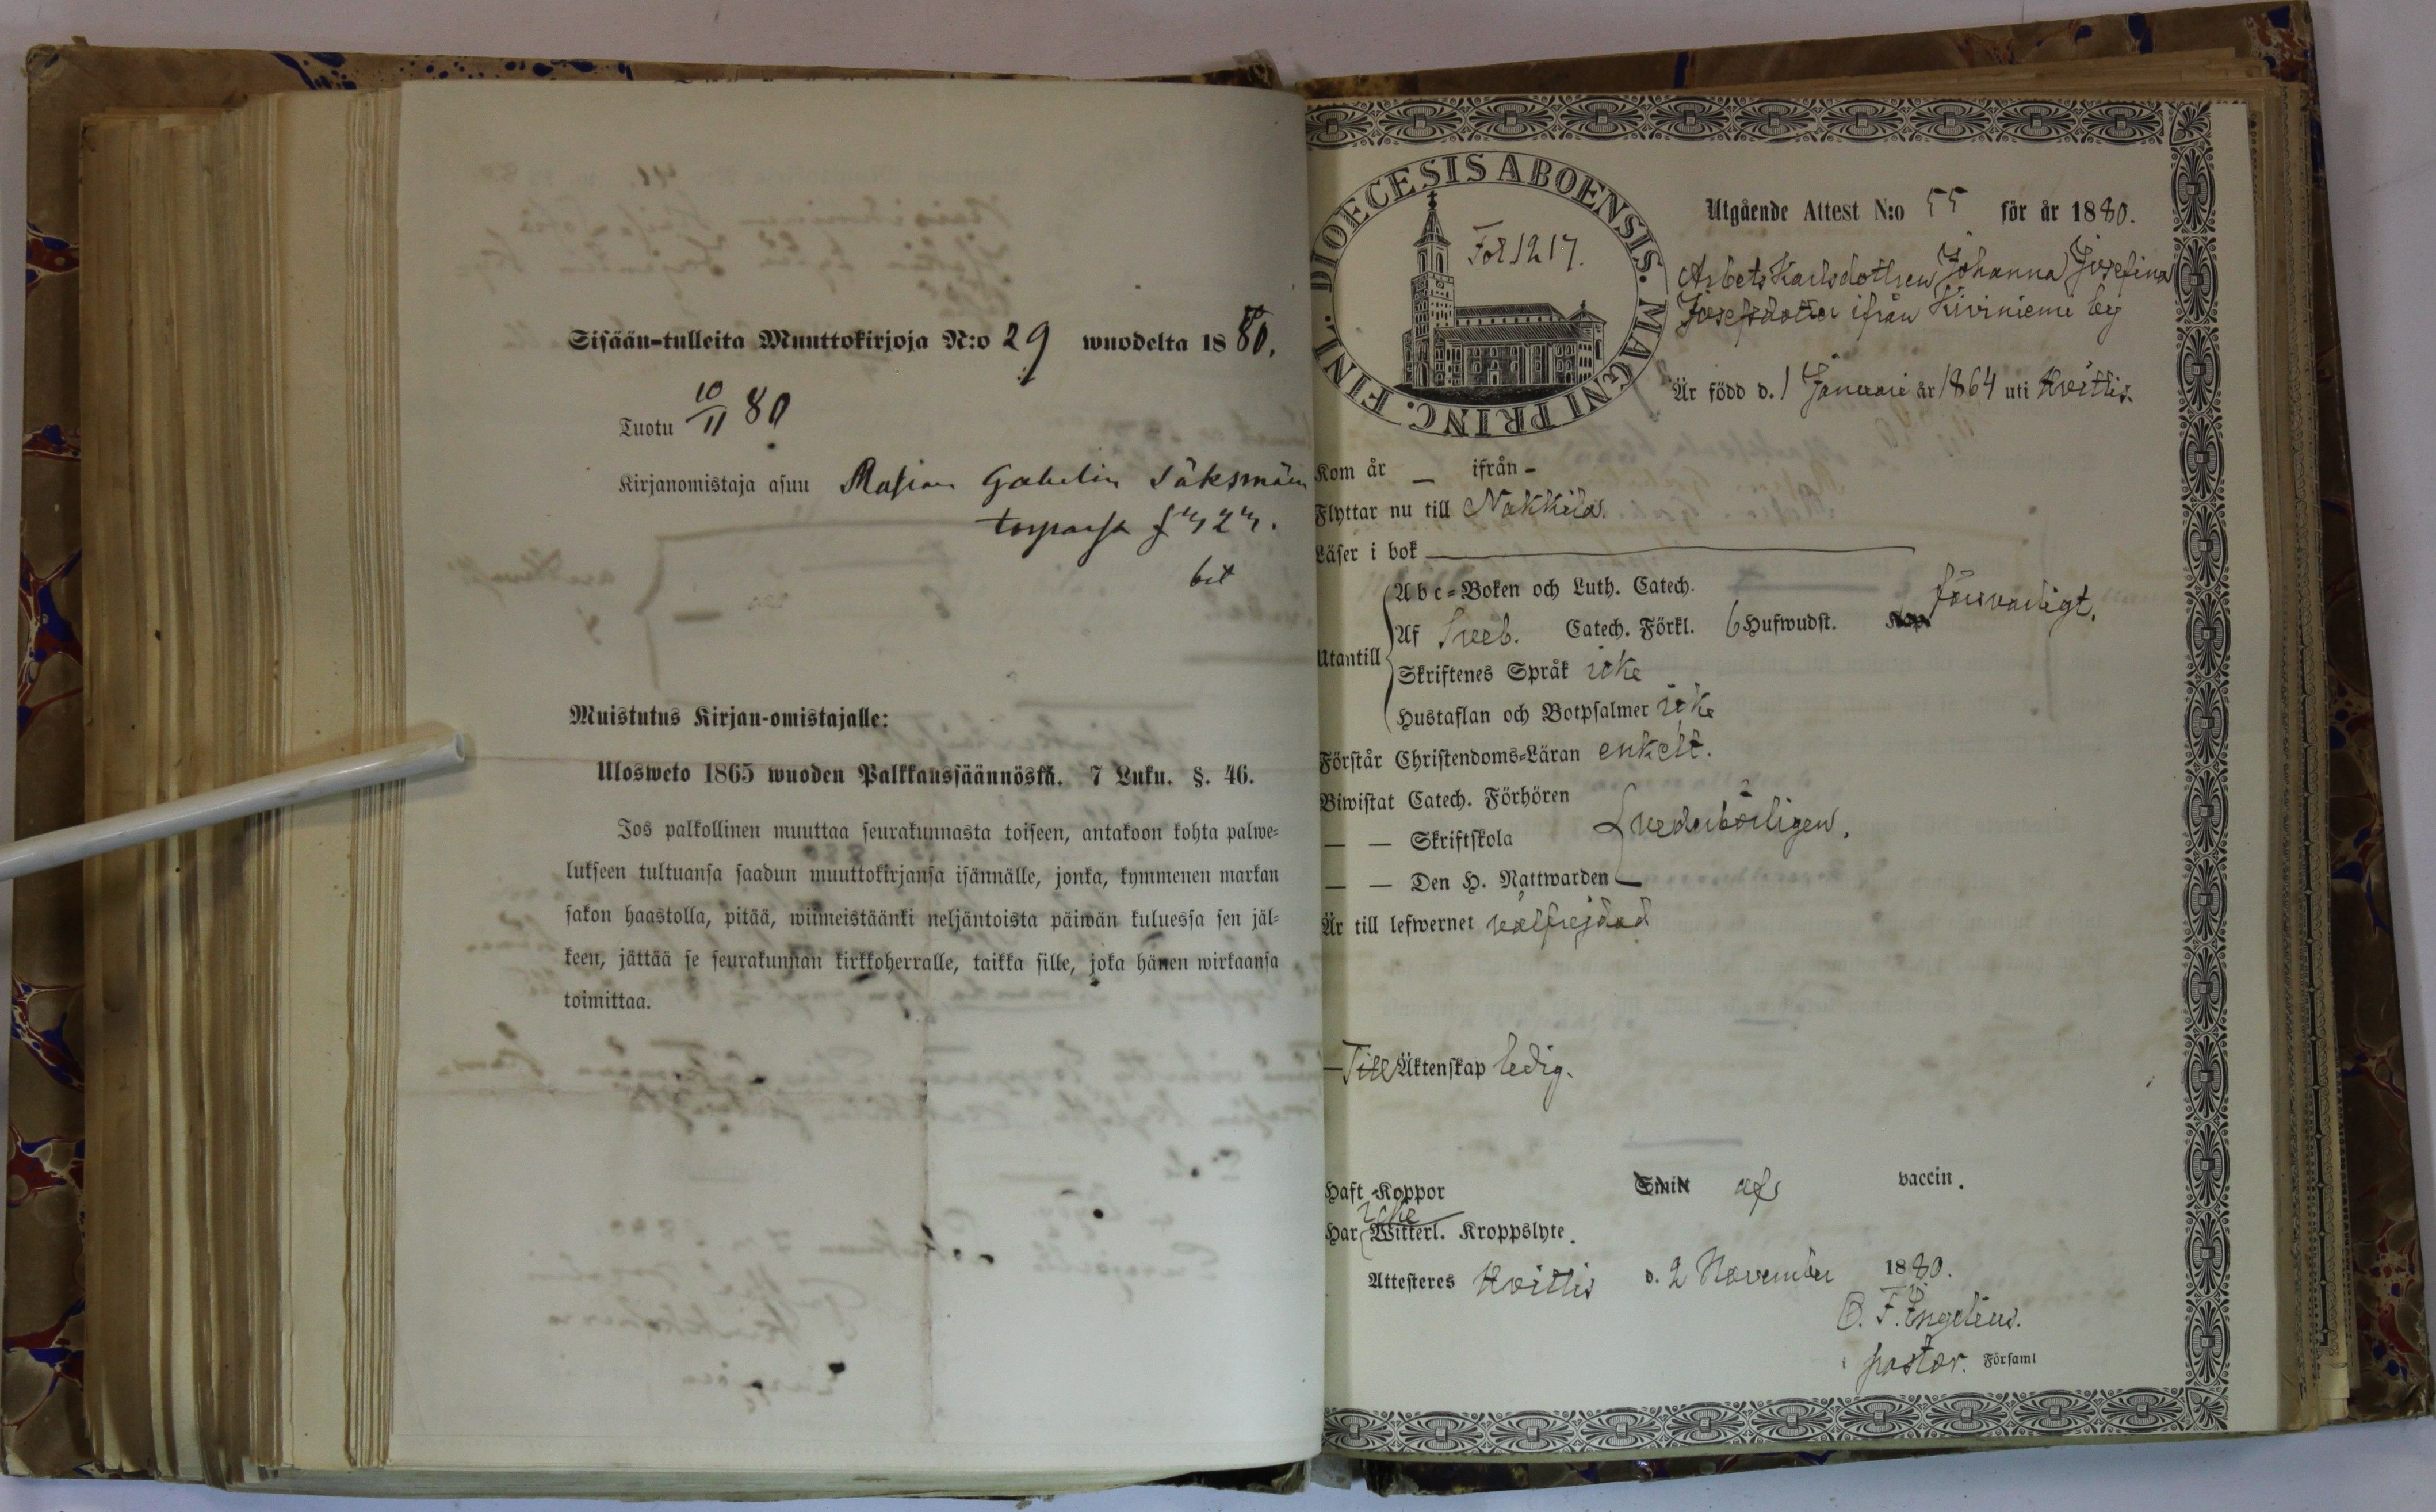 Sisään-tulleita Muuttokirjoja N:o 29 wuodelta 1880.
Tuotu 10/11 80
Kirjanomistaja asuu Masian Gabelin Säksmäen
torpassa
bet
Muistutus Kirjan-omistajalle:
Ulosweto 1865 wuoden Palkkaussäännöstä. 7 Luku. §. 46.
Jos palkollinen muuttaa seurakunnasta toiseen, antakoon kohta palwe-
lukseen tultuansa saadun muuttokirjansa isännälle, jonka, kymmenen markan
sakon haastolla, pitää, wiimeistäänki neljäntoista päiwän kuluessa sen jäl-
keen, jättää se seurakunnan kirkkoherralle, taikka sille, joka hänen wirkaansa
toimittaa.
DIOECESIS ABOENSIS. MAGNI PRINC. FINL.
Fol 1217.
Utgående Attest N:o 55 för år 1880.
Arbets Karlsdottren Johanna Josefina
Josefsdotter ifrån Kiviniemi by
Är född d. 1 Januari år 1864 uti Hvittis.
Kom år — ifrån -
Flyttar nu till Nakkila.
Läser i bok
Abc-Boken och Luth. Catech.
försvarligt.
Af Sveb. Catech. Förkl. 6 Hufwudst.
Utantill
Skriftenes Språk icke
Hustaflan och Botpsalmer icke
Förstår Christendoms-Läran enkelt.
Biwistat Catech. Förhören
— — Skriftskola vederbörligen.
— — Den H. Nattwarden
Är till lefwernet välfrejdad
Till Äktenskap ledig.
Haft Koppor Smitt vaccin.
icke
Har Witterl. Kroppslyte.
Attesteres Hvittis d. 2 November 1880.
O. F. Engelius.
pastor. Församl